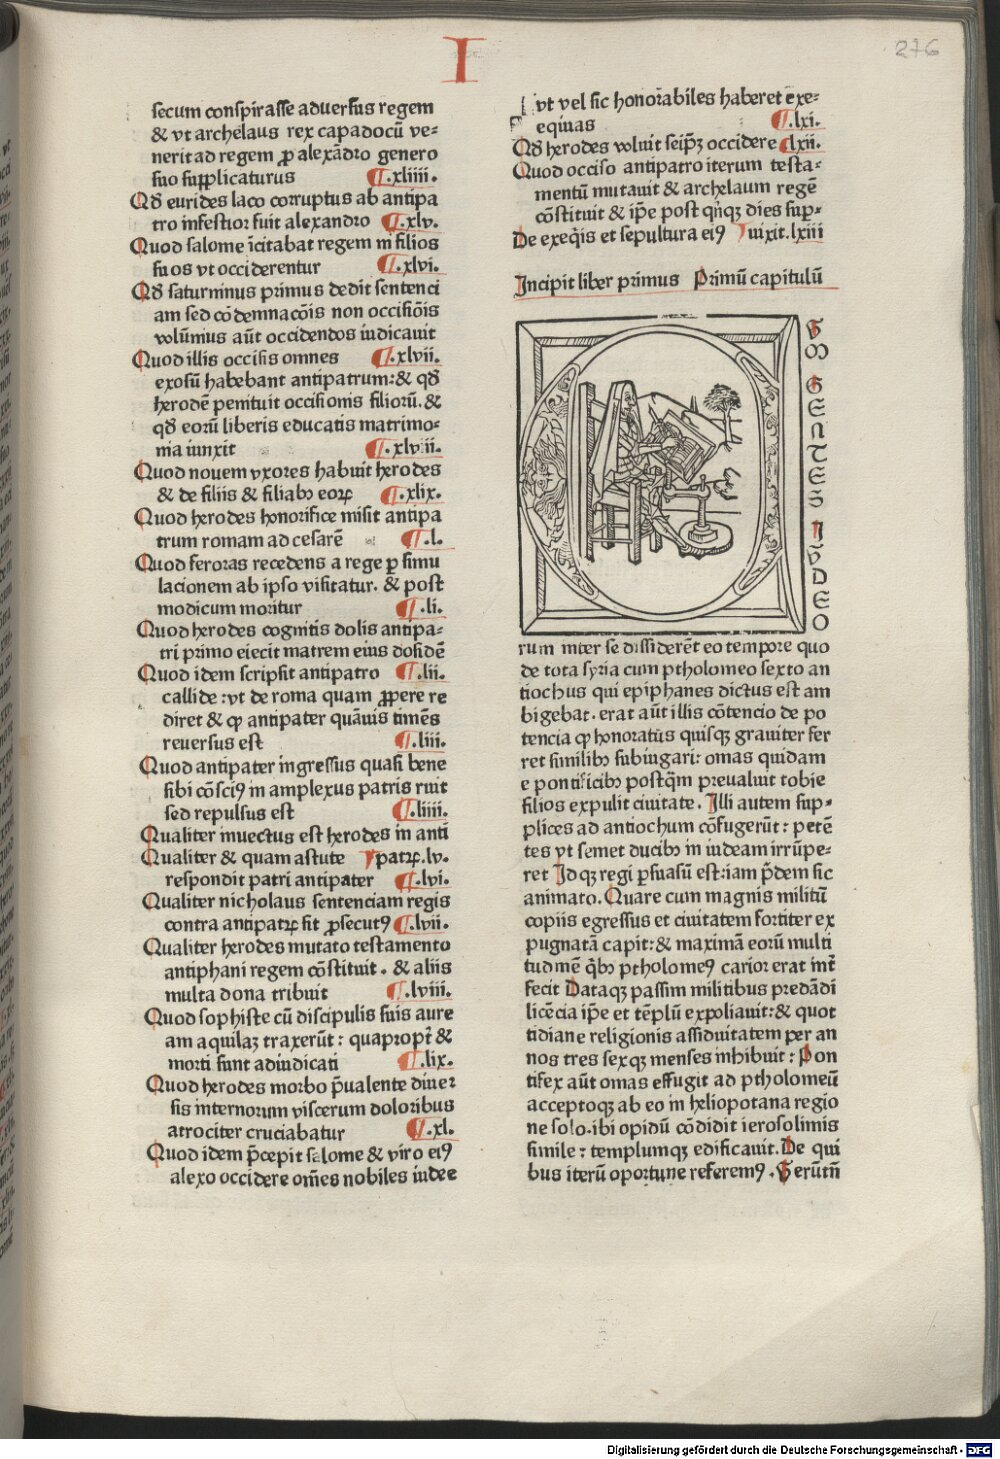 I
276
secum conspirasse aduersus regem
& vt archelaus rex capadocū ve-
nerit ad regem ꝓ alexādro genero
suo supplicaturus ¶.xliiii.
Qđ eurides laco corruptus ab antipa
tro infestior fuit alexandro ¶.xlv.
Quod salome īcitabat regem in filios
suos vt occiderentur ¶.xlvi.
Qđ saturninus primus dedit sentenci
am sed cōdemnacōis non occisiōis
volūmius aūt occidendos iudicauit
Quod illis occisis omnes ¶.xlvii.
exosū habebant antipatrum: & qđ
herodē penituit occisionis filiorū. &
qđ eorū liberis educatis matrimo-
nia iunxit ¶.xlviii.
Quod nouem vxores habuit herodes
& de filiis & filiabꝫ eoꝝ ¶.xlix.
Quod herodes honorifice misit antipa
trum romam ad cesarē ¶.l.
Quod feroras recedens a rege ꝑ simu
lacionem ab ipso visitatur. & post
modicum moritur ¶.li.
Quod herodes cognitis dolis antipa-
tri primo eiecit matrem eius dosidē
Quod idem scripsit antipatro ¶.lii.
callide: vt de roma quam ꝓpere re
diret & ꝙ antipater quāuis timēs
reuersus est ¶.liii.
Quod antipater ingressus quasi bene
sibi cōsciꝰ in amplexus patris ruit
sed repulsus est ¶.liiii.
Qualiter inuectus est herodes in anti
Qualiter & quam astute patꝝ.lv.
respondit patri antipater ¶.lvi.
Qualiter nicholaus sentenciam regis
contra antipatꝝ sit ꝓsecutꝰ ¶.lvii.
Qualiter herodes mutato testamento
antiphani regem cōstituit. & aliis
multa dona tribuit ¶.lviii.
Quod sophiste cū discipulis suis aure
am aquilaꝫ traxerūt: quapropt̄ &
morti sunt adiudicati ¶.lix.
Quod herodes morbo p̄ualente diuer
sis internorum viscerum doloribus
atrociter cruciabatur ¶.xl.
Quod idem p̄cepit salome & viro eiꝰ
alexo occidere om̄es nobiles iudee
vt vel sic honorabiles haberet exe-
equias ¶.lxi.
Qđ herodes voluit seip̄ꝫ occidere ¶lxii.
Quod occiso antipatro iterum testa-
mentū mutauit & archelaum regē
cōstituit & ip̄e post qn̄qꝫ dies sup̄-
De exeq̄is et sepultura eiꝰ uixit.lxiii
Incipit liber primus Primū capitulū
GENTES IVDEO
rum inter se dissiderēt eo tempore quo
de tota syria cum ptholomeo sexto an
tiochus qui epiphanes dictus est am
bigebat. erat aūt illis cōtencio de po
tencia ꝙ honoratus quisqꝫ grauiter fer
ret similibꝫ subiungari: omas quidam
e pontificibꝫ postq̄m preualuit tobie
filios expulit ciuitate. Illi autem sup-
plices ad antiochum cōfugerūt: petē
tes vt semet ducibꝫ in iudeam irrūpe-
ret Idqꝫ regi ꝑsuasū est: iam p̄dem sic
animato. Quare cum magnis militū
copiis egressus et ciuitatem fortiter ex
pugnatā capit: & maximā eorū multi
tudinē q̄bꝫ ptholomeꝰ carior erat int̄
fecit Dataqꝫ passim militibus predādi
licēcia ip̄e et tēplū expoliauit: & quot
tidiane religionis assiduitatem per an
nos tres sexqꝫ menses inhibuit: Pon
tifex aūt omas effugit ad ptholomeū
acceptoqꝫ ab eo in heliopotana regio
ne solo. ibi opidū cōdidit ierosolimis
simile: templumqꝫ edificauit. De qui
bus iterū oportune referemꝰ. Uerūtn̄
Digitalisierung gefördert durch die Deutsche Forschungsgemeinschaft - DFG